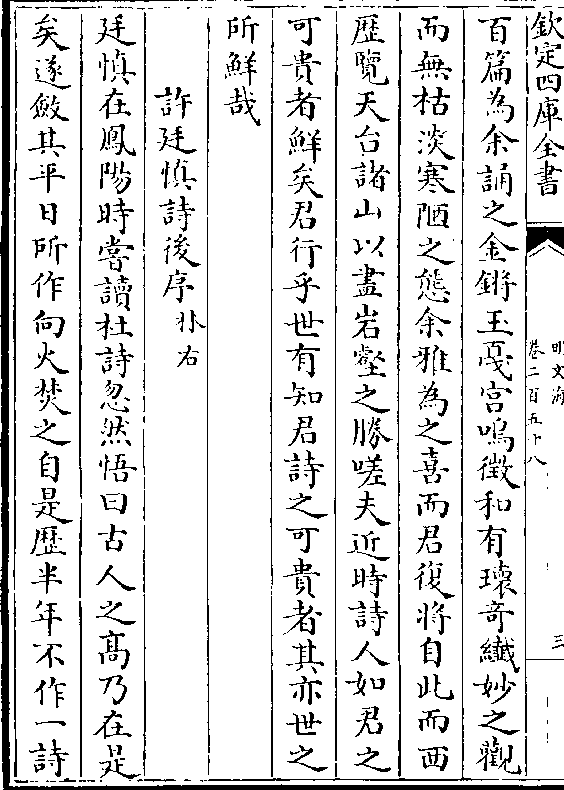 欽定四庫全書
明文海
卷二百五十八
三
百篇為余誦之金鏘玉戛宫鳴徵和有瓌竒纎妙之觀
而無枯淡寒陋之態余雅為之喜而君復將自此而西
歴覽天台諸山以盡岩壑之勝嗟夫近時詩人如君之
可貴者鮮矣君行乎世有知君詩之可貴者其亦世之
所鮮哉
許廷慎詩後序林右
廷慎在鳳陽時嘗讀杜詩忽然悟曰古人之髙乃在是
矣遂斂其平日所作向火焚之自是歴半年不作一詩